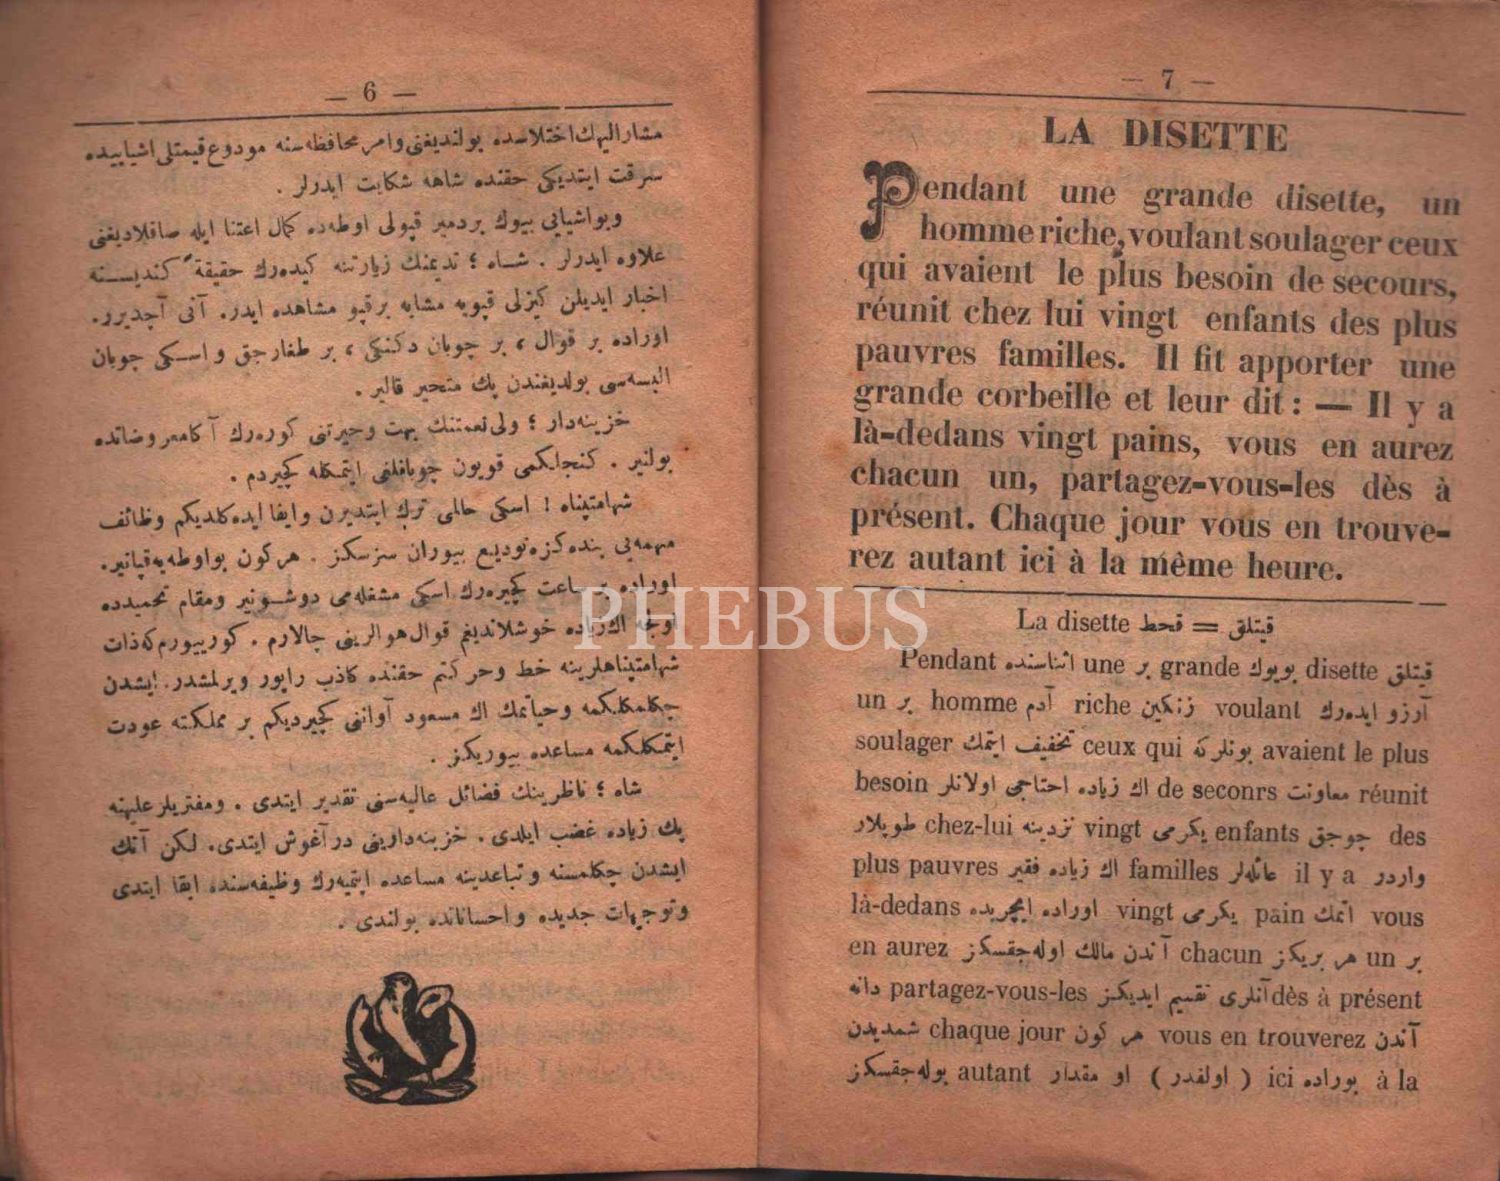 — 6 —
مشارالیهك اختلاسده بولندیغنی وامر محافظه‌سنه مودوع قیمتلی اشیاییده
سرقت ایتدیکی حقنده شاهه شکایت ایدرلر .
وبواشیایی بیوك بردمیر قپولی اوطه‌ده کمال اعتنا ایله صاقلادیغنی
علاوه ایدرلر . شاه ؛ ندیمنك زیارتنه کیده‌رك حقیقةً کندیسنه
اخبار ایدیلن کیزلی قپویه مشابه برقپو مشاهده ایدر. آنی آچدیرر.
اوراده بر قوال ، بر چوبان دکنکی ، بر طغارجق و اسکی چوبان
البسه‌سی بولدیغندن پك متحیر قالیر .
خزینه‌دار ؛ ولی‌نعمتنك بهت وحیرتنی کوره‌رك آکا معروضاتده
بولنیر . کنجلکمی قویون چوبانلغی ایتمکله کچیردم .
شهامتپناه ! اسکی حالمی ترك ایتدیرن وایفا ایده‌کلدیکم وظائف
مهمه‌یی بنده‌کزه تودیع بیوران سزسکز . هرکون بواوطه‌یه قپانیر.
اوراده ساعت کچیره‌رك اسکی مشغله‌می دوشونیر ومقام تحمیدده
اولجه اك زیاده خوشلاندیغم قوال هوالرینی چالارم . کورییورم که ذات
شهامتپناهلرینه خط وحرکتم حقنده کاذب راپور ویرلمشدر. ایشدن
چکلمکلکمه وحیاتمك اك مسعود آواننی کچیردیکم بر مملکته عودت
ایتمکلکمه مساعده بیوریکز .
شاه ؛ ناظرینك فضائل عالیه‌سنی تقدیر ایتدی . ومفتریلرعلیهنه
پك زیاده غضب ایلدی . خزینه‌دارینی درآغوش ایتدی. لکن آنك
ایشدن چکلمسنه وتباعدینه مساعده ایتمیه‌رك وظیفه‌سنده ابقا ایتدی
وتوجیهات جدیده واحساناتده بولندی .
— 7 —
LA DISETTE
Pendant une grande disette, un
homme riche, voulant soulager ceux
qui avaient le plus besoin de secours,
réunit chez lui vingt enfants des plus
pauvres familles. Il fit apporter une
grande corbeille et leur dit : — Il y a
là-dedans vingt pains, vous en aurez
chacun un, partagez-vous-les dès à
présent. Chaque jour vous en trouve-
rez autant ici à la même heure.
La disette قیتلق = قحط
Pendant اثناسنده une بر grande بویوك disette قیتلق
un بر homme آدم riche زنکین voulant آرزو ایده‌رك
soulager تخفیف ایتمك ceux qui بونلرکه avaient le plus
besoin اك زیاده احتاجی اولانلر de seconrs معاونت réunit
طوپلار chez-lui نزدینه vingt یکرمی enfants چوجق des
plus pauvres اك زیاده فقیر familles عائله‌لر il y a واردر
là-dedans اوراده ایچریده vingt یکرمی pain اتمك vous
en aurez آندن مالك اوله‌جقسکز chacun هر بریکز un بر
دانه partagez-vous-les آنلری تقسیم ایدیکز dès à présent
شمدیدن chaque jour هر کون vous en trouverez آندن
بوله‌جقسکز autant او مقدار ( اولقدر ) ici بوراده à la
PHEBUS